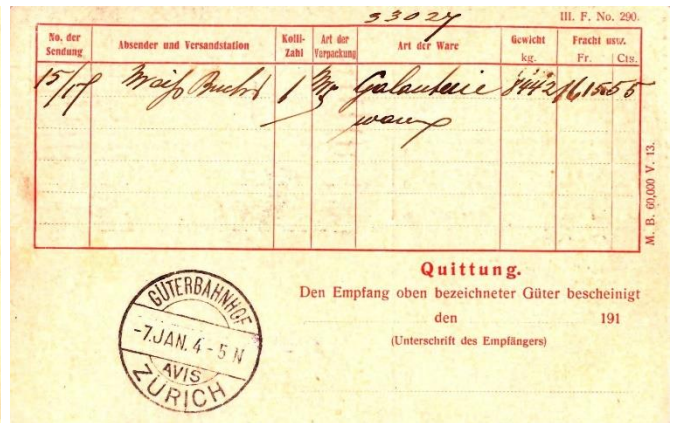 33027
III. F. No. 290.
No. der Sendung Absender und Versandstation Kolli-Zahl Art der Verpackung Art der Ware Gewicht kg. Fracht usw. Fr. Cts.
15/17 1 Galanterie
waren
M. B. 60,000 V. 13.
Quittung.
Den Empfang oben bezeichneter Güter bescheinigt
den 191
(Unterschrift des Empfängers)
GÜTERBAHNHOF
-7.JAN. 4-5 N
AVIS
ZÜRICH